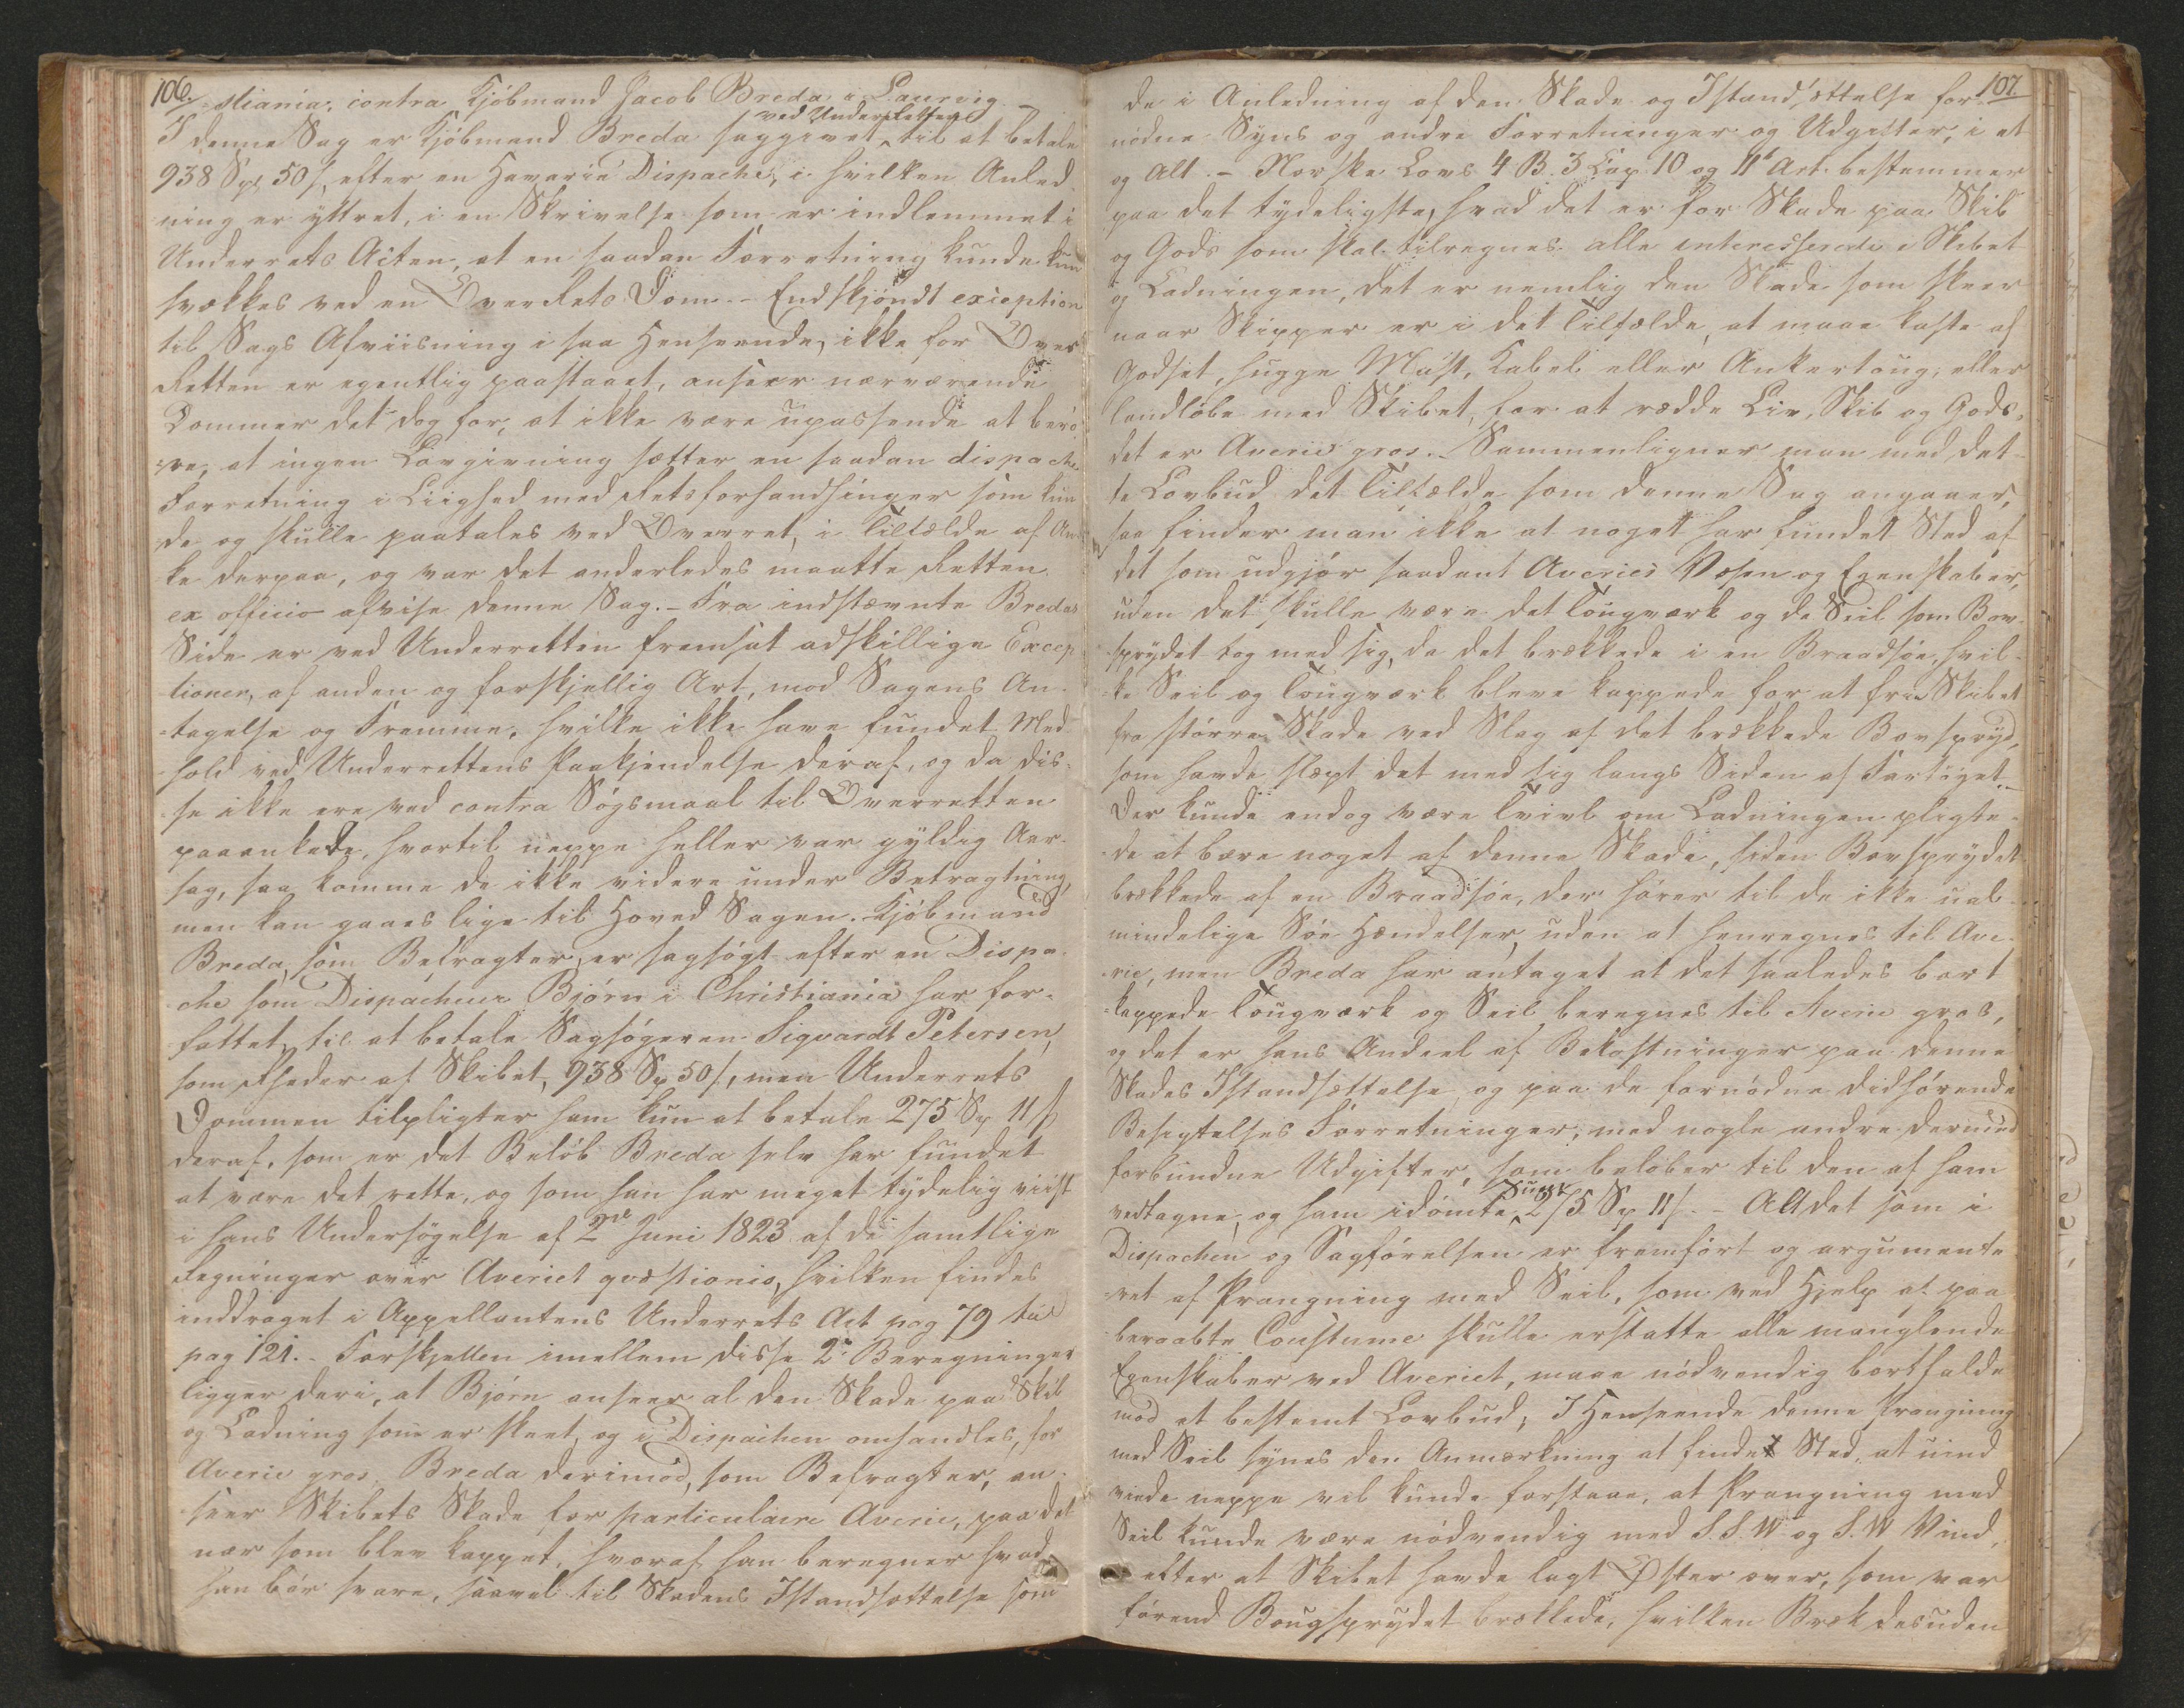 106.
-stiania, contra Kjøbmand Jacob Breda i Laurvig. –
ved Underretten
I denne Sag er Kjøbmand Breda saggivet til at betale
938 Spd 50 s, efter en Havarie Dispache, i hvilken Anled-
ning er yttret, i en Skrivelse som er indlemmet i
Underrets Acten, at en saadan Forretning kunde kun
svækkes ved en OverRets Dom. – Endskjøndt exception
til Sags Afviisning i saa Henseende, ikke for Over
Retten er egentlig paastaaet, anseer nærværende
Dommer det dog for, at ikke være upassende at berø-
re, at ingen Lovgivning sætter en saadan dispache
Forretning i Liighed med Retsforhandlinger som kun-
de og skulle paatales ved Overret, i Tilfælde af An-
ke derpaa, og var det anderledes maatte Retten
ex officio afvise denne Sag. – Fra indstævnte Bredas
Side er ved Underretten fremsat adskillige Excep-
tioner, af anden og forskjellig Art, mod Sagens An-
tagelse og Fremme, hvilke ikke have fundet Med-
hold ved Underrettens Paakjendelse deraf, og da dis-
se ikke ere ved contra Søgsmaal til Overretten
paaankede, hvortil neppe heller var gyldig Aar-
sag, saa komme de ikke videre under Betragtning,
men kan gaaes lige til Hoved Sagen. Kjøbmand
Breda, som Befragter, er sagsøgt efter en Dispa-
che som Dispacheur Bjørn i Christiania har for-
fattet, til at betale Sagsøgeren Sigvardt Petersen,
som Rheder af Skibet, 938 Sp 50 s, men Underrets
Dommen tilpligter ham kun at betale 275 Sp 11 s
deraf, som er det Beløb Breda selv har fundet
at være det rette, og som han har meget tydelig viist
i hans Undersøgelse af 2de Juni 1823 af de samtlige
Regninger over Averiet qvæstionis, hvilken findes
inddraget i Appellantens Underrets Act pag 79 til
pag 121. – Forskjellen imellem disse 2de Beregninger
ligger deri, at Bjørn anseer al den Skade paa Skib
og Ladning som er skeet, og i Dispachen omhandles, for
Averie gros. Breda derimod, som Befragter, an-
seer Skibets Skade for particulaire Averie, paa det
nær som blev kappet, hvoraf han beregner hvad
han bør svare, saavel til Skadens Istandsættelse som
107.
de i Anledning af den Skade og Istandsættelse for-
nødne Syns og andre Forretninger og Udgifter, i et
og Alt. – Norske Lovs 4 B. 3 Cap 10 og 11te Art. bestemmer
paa det tydeligste, hvad det er for Skade paa Skib
og Gods som skal tilregnes alle interesserede i Skibet
og Ladningen, det er nemlig den Skade som skeer
naar Skipper er i det Tilfælde, at maae kaste af
Godset, hugge Mast, Kabel eller Ankertoug, eller
landløbe med Skibet, for at redde Liv, Skib og Gods,
det er Averie gros. – Sammenligner man med det-
te Lovbud det Tilfælde som denne Sag angaaer,
saa finder man ikke at noget har fundet Sted af
det som udgjør saadant Averies Væsen og Egenskaber,
uden det skulle være det Tougværk og de Seil som Bov-
sprydet tog med sig, da det brækkede i en Braadsøe, hvil-
ke Seil og Tougværk bleve kappede for at frie Skibet
fra større Skade ved Slag af det brækkede Bovspryd,
som havde slæpt det med sig langs Siden af Fartøiet. –
Der kunde endog være Tvivl om Ladningen pligte-
de at bære noget af denne Skade, siden Bovsprydet
brækkede af en Braadsøe, der hører til de ikke ual-
mindelige Søe Hændelser, uden at henregnes til Ave-
rie, men Breda har antaget at det saaledes bort
kappede Tougværk og Seil beregnes til Averie gros,
og det er hans Andeel af Bekostninger paa denne
Skades Istandsættelse, og paa de fornødne didhørende
Besigtelses Forretninger, med nogle andre dermed
forbundne Udgifter, som beløber til den af ham
Sum
vedtagne, og ham idømte, 275 Sp 11 s. – Alt det som i
Dispachen og Sagførelsen er fremført og argumente-
ret af Prangning med Seil, som ved Hjelp af paa
beraabte Coustume skulle erstatte alle manglende
Egenskaber ved Averiet, maae nødvendig bortfalde
mod et bestemt Lovbud; I Henseende denne Prangning
med Seil synes den Anmærkning at finde Sted, at uind
viede neppe vil kunde forstaae, at Prangning med
Seil kunde være nødvendig med S. S. W og S. W Vind,
efter at Skibet havde lagt Øster over, som var
førend Bougsprydet brækkede, hvilken Bræk desuden